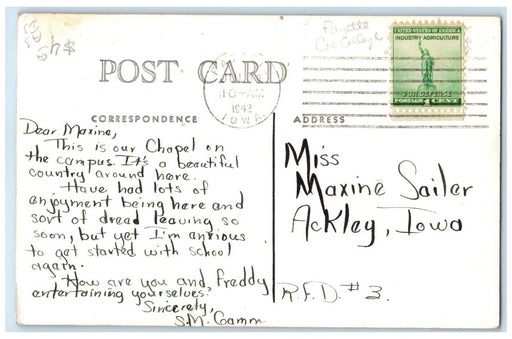 $4
Fayette
Co. College
UNITED STATES OF AMERICA
INDUSTRY-AGRICULTURE
FOR DEFENSE
POSTAGE 1 CENT
POST CARD
10-AM
1942
IOWA
CORRESPONDENCE
ADDRESS
Dear Maxine,
This is our Chapel on
the campus. It's a beautiful
country around here.
Have had lots of
enjoyment being here and
sort of dread leaving so
soon, but yet I'm anxious
to get started with school
again.
How are you and Freddy
entertaining yourselves?
Sincerely,
S.M. Gamm
Miss
Maxine Sailer
Ackley, Iowa
R.F.D. #3.